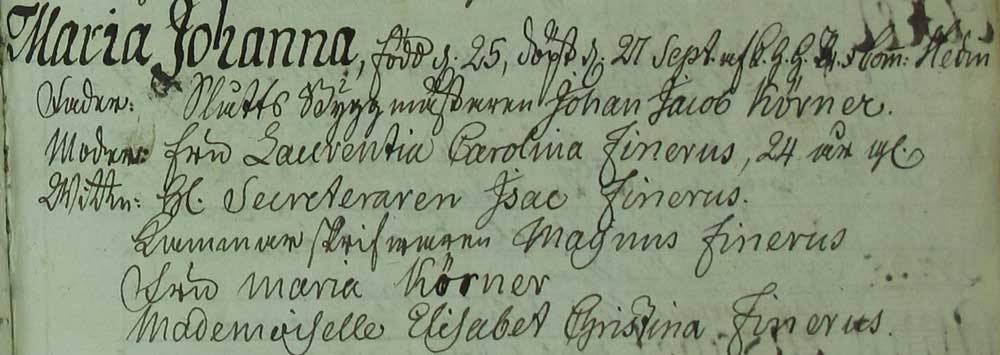 Maria Johanna, född d. 25, döpt d. 27 Sept. af Com: Hedin
Fader: Slotts Bygg mästaren Johan Jacob Körner.
Moder: fru Laurentia Carolina Finerus, 24 år gl.
Wittn: Hl. Secreteraren Isac Finerus.
Kammar skrifwaren Magnus Finerus
Fru Maria Körner
Mademoiselle Elisabet Christina Finerus.